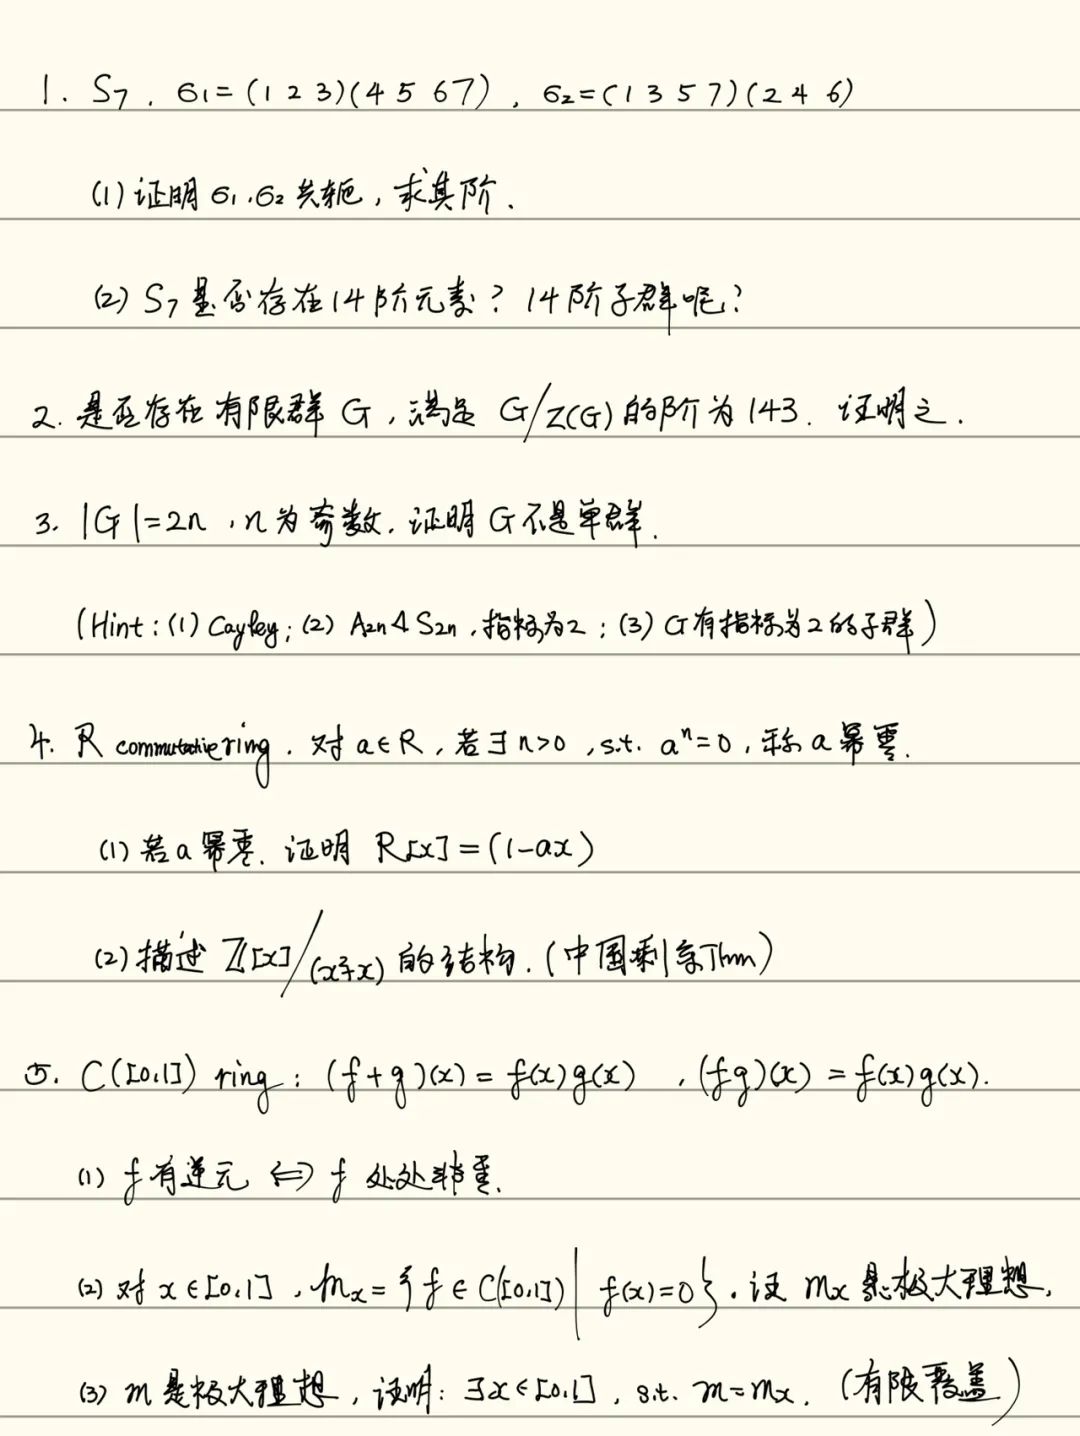 1. S₇, σ₁=(1 2 3)(4 5 6 7), σ₂=(1 3 5 7)(2 4 6)
(1) 证明σ₁,σ₂共轭,求其阶.
(2) S₇是否存在14阶元素? 14阶子群呢?
2. 是否存在有限群G,满足 G/Z(G)的阶为143. 证明之.
3. |G|=2n, n为奇数. 证明G不是单群.
(Hint: (1) Cayley; (2) A₂ₙ⊲S₂ₙ, 指标为2; (3) G有指标为2的子群)
4. R commutative ring. 对a∈R, 若∃n>0, s.t. aⁿ=0, 称a幂零.
(1) 若a幂零. 证明 R[x]=(1-ax)
(2) 描述 ℤ[x]/(x²+x) 的结构. (中国剩余Thm)
5. C([0,1]) ring: (f+g)(x)=f(x)g(x), (fg)(x)=f(x)g(x).
(1) f有逆元 ⇔ f处处非零.
(2) 对x∈[0,1], mₓ={f∈C([0,1])|f(x)=0}. 证 mₓ是极大理想.
(3) m是极大理想, 证明: ∃x∈[0,1], s.t. m=mₓ. (有限覆盖)